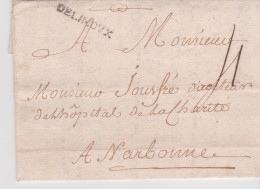 DELIMOUX
A Monsieur
Monsieur Joufré
de L'hôpital de La Charité
A Narbonne